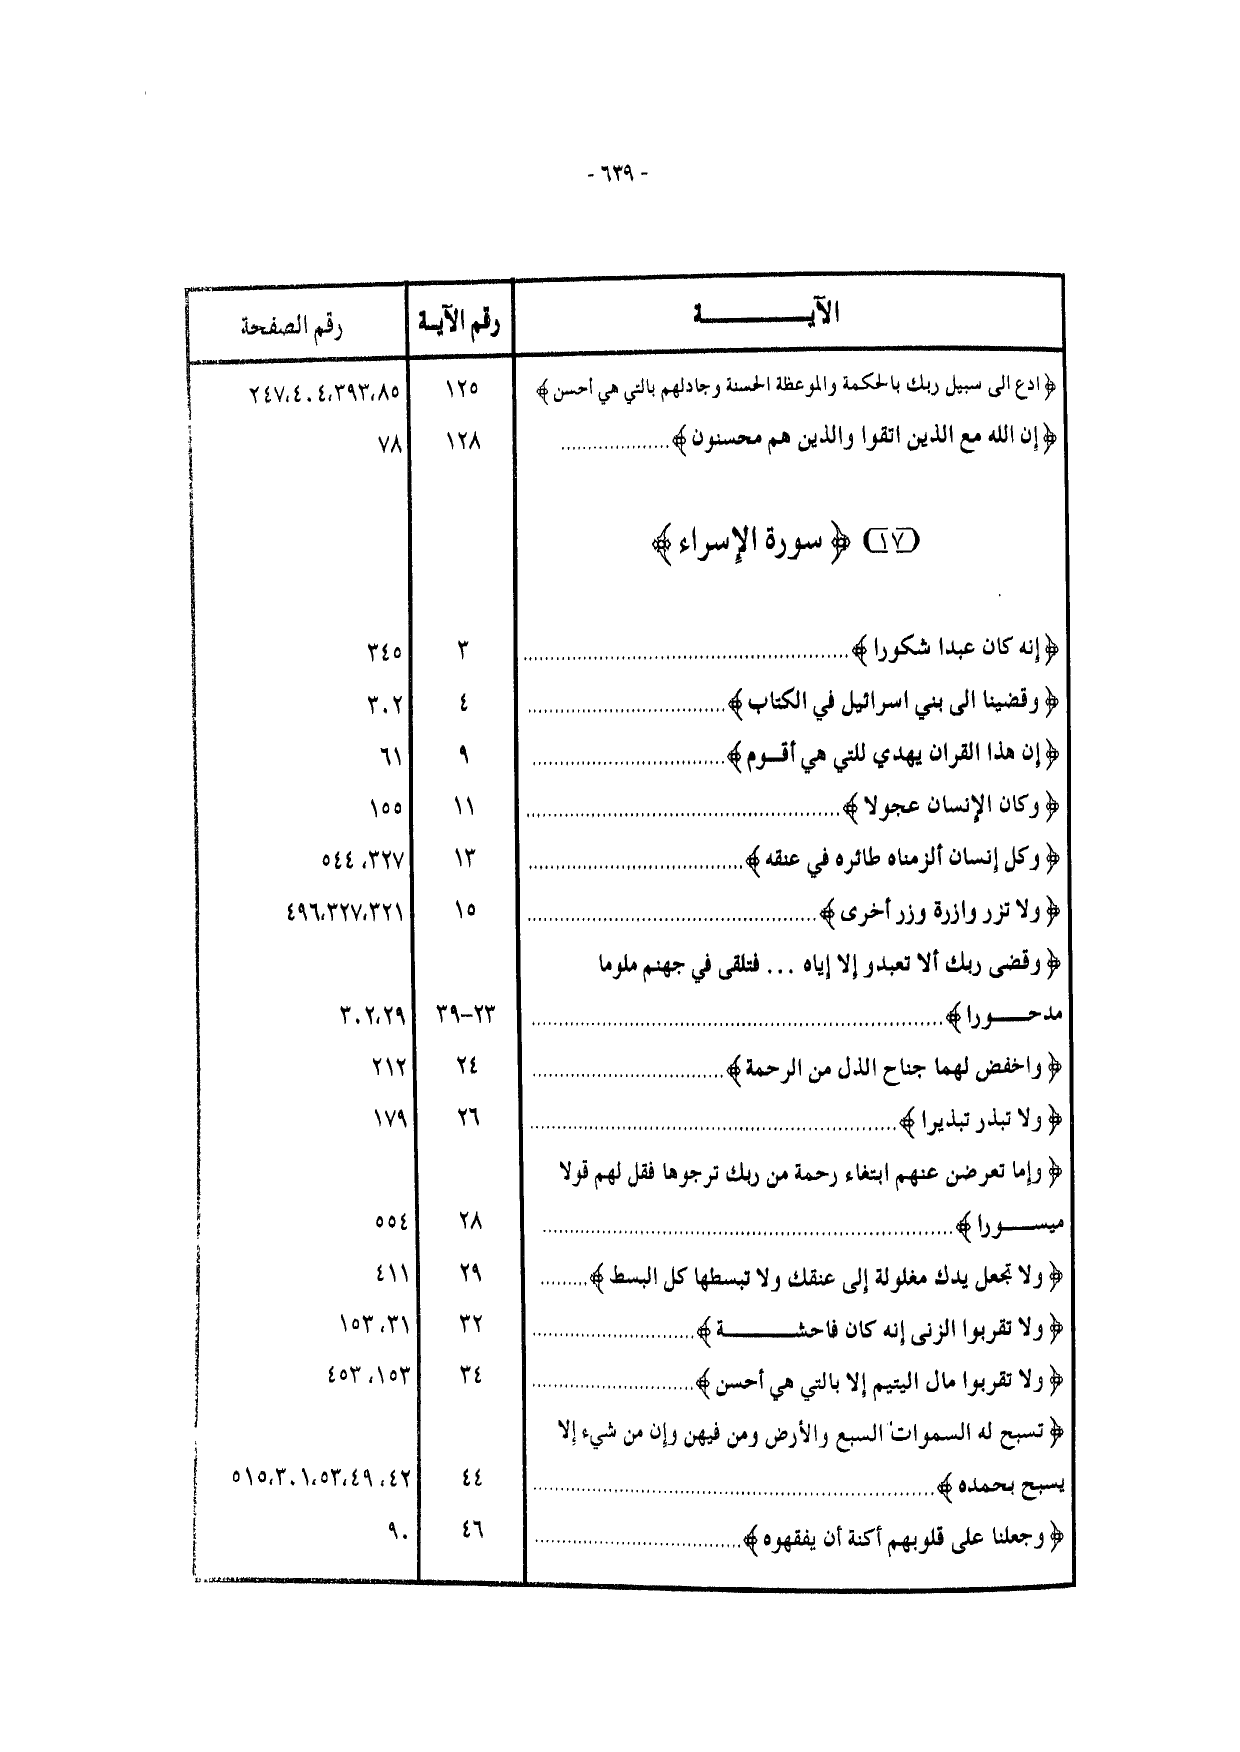 - ٦٣٩ -
الآيـــــــــة رقم الآيـة رقم الصفحة
﴿ ادع الى سبيل ربك بالحكمة والموعظة الحسنة وجادلهم بالتي هي أحسن ﴾ ١٢٥ ٨٥،٣٩٣،٤٠٤،٢٤٧
﴿ إن الله مع الذين اتقوا والذين هم محسنون ﴾ .................. ١٢٨ ٧٨
(١٧) ﴿ سورة الإسراء ﴾
﴿ إنه كان عبدا شكورا ﴾ .................. ٣ ٣٤٥
﴿ وقضينا الى بني اسرائيل في الكتاب ﴾ .................. ٤ ٣٠٢
﴿ إن هذا القران يهدي للتي هي أقـوم ﴾ .................. ٩ ٦١
﴿ وكان الإنسان عجولا ﴾ .................. ١١ ١٥٥
﴿ وكل إنسان ألزمناه طائره في عنقه ﴾ .................. ١٣ ٣٢٧، ٥٤٤
﴿ ولا تزر وازرة وزر أخرى ﴾ .................. ١٥ ٣٢١،٣٢٧،٤٩٦
﴿ وقضى ربك ألا تعبدو إلا إياه ... فتلقى في جهنم ملوما
مدحـــورا ﴾ .................. ٢٣-٣٩ ٢٩،٣٠٢
﴿ واخفض لهما جناح الذل من الرحمة ﴾ .................. ٢٤ ٢١٢
﴿ ولا تبذر تبذيرا ﴾ .................. ٢٦ ١٧٩
﴿ وإما تعرضن عنهم ابتغاء رحمة من ربك ترجوها فقل لهم قولا
ميســـورا ﴾ .................. ٢٨ ٥٥٤
﴿ ولا تجعل يدك مغلولة إلى عنقك ولا تبسطها كل البسط ﴾ ......... ٢٩ ٤١١
﴿ ولا تقربوا الزنى إنه كان فاحشـــــة ﴾ .................. ٣٢ ٣١، ١٥٣
﴿ ولا تقربوا مال اليتيم إلا بالتي هي أحسن ﴾ .................. ٣٤ ١٥٣، ٤٥٣
﴿ تسبح له السموات السبع والأرض ومن فيهن وإن من شيء إلا
يسبح بحمده ﴾ .................. ٤٤ ٤٢، ٤٩،٥٣،٣٠١،٥١٥
﴿ وجعلنا على قلوبهم أكنة أن يفقهوه ﴾ .................. ٤٦ ٩٠